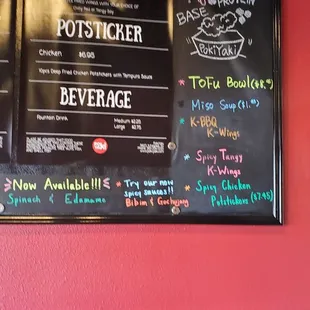 POTSTICKER
Chicken $6.95
10pcs Deep Fried Chicken Potstickers with Tempura Sauce
BEVERAGE
Fountain Drink
Medium
Large
BASE
PROTEIN
POKIYAKI
* TOFU BOWL
* Miso Soup
* K-BBQ
K-Wings
* Spicy Tangy
K-Wings
* Spicy Chicken
Potstickers ($7.95)
Now Available!!!
Spinach & Edamame
* Try our new
spicy sauces!!
Bibim & Gochujang